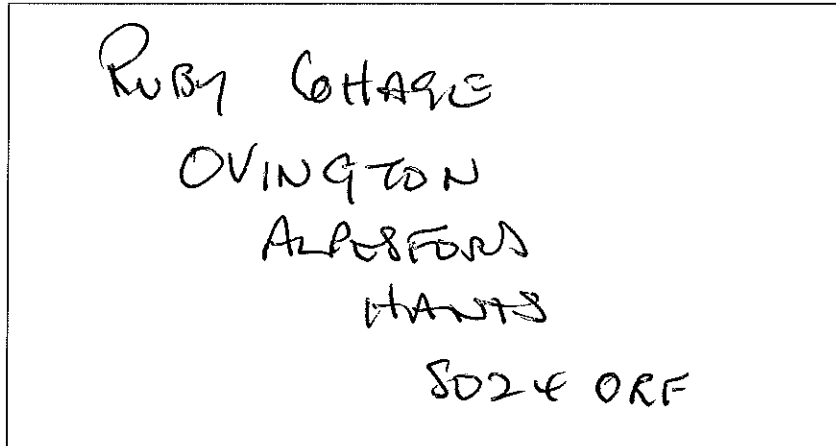 RUBY COTTAGE
OVINGTON
ALRESFORD
HANTS
SO24 0RF